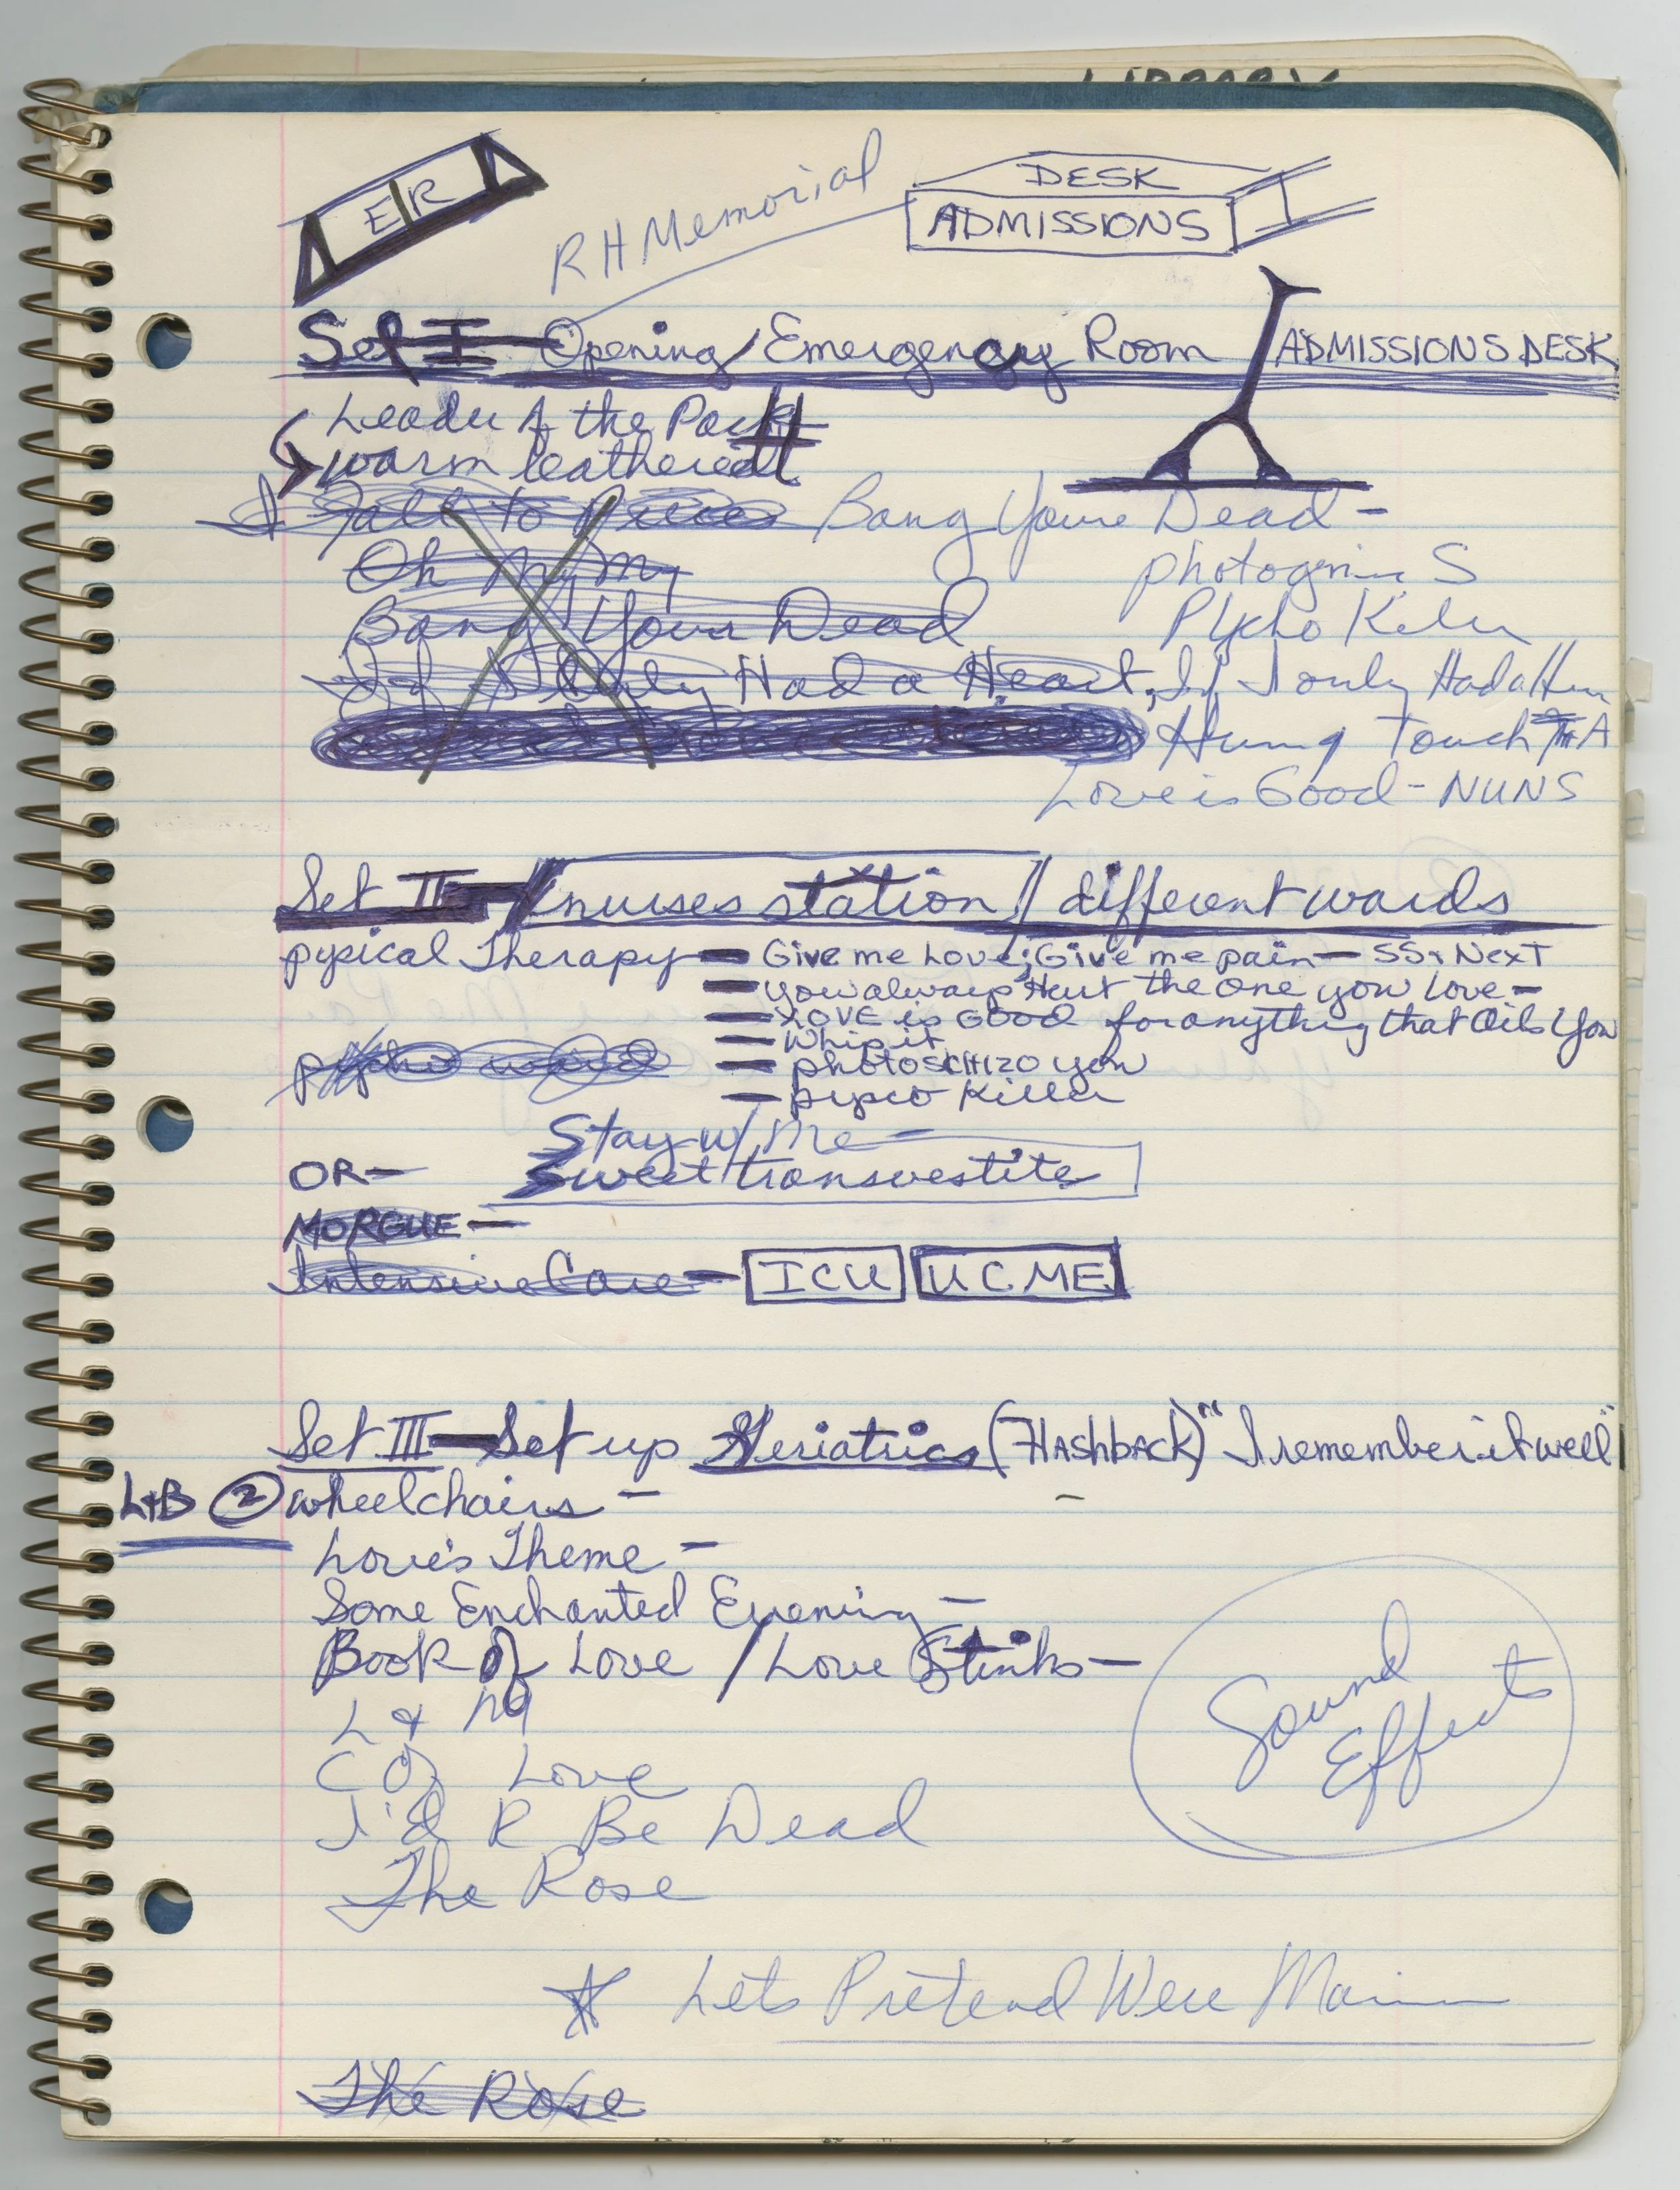 LIBRARY
E/R
RH Memorial
DESK
ADMISSIONS
Set I - Opening / Emergency Room / ADMISSIONS DESK
Leader of the Pack
warm leatherett
I Fall to Pieces Bang Youre Dead -
Oh My My
photogenic S
Bang Your Dead
Psycho Killer
If I Only Had a Heart, If I only Had a Hear
Hung Touch A
Love is Good - NUNS
Set II - / nurses station // different wards
pysical Therapy - Give me Love; Give me pain - SS + Next
- you always Hurt the One you Love -
- LOVE is GOOD for anything that Oils You
- Whip it
psycho ward - photoschizo you
- pysco Killer
Stay w/ Me -
OR - Sweet transvestite
MORGUE -
Intensive Care - ICU UCME
Set III - Set up Geriatrics (Flashback) "I remember it well"
L+B ② wheelchairs -
Love's Theme -
Some Enchanted Evening -
Book of Love / Love Stinks -
L & M
C of Love
I'd R Be Dead
The Rose
Sound
Effects
☆ Lets Pretend Were Mar
The Rose